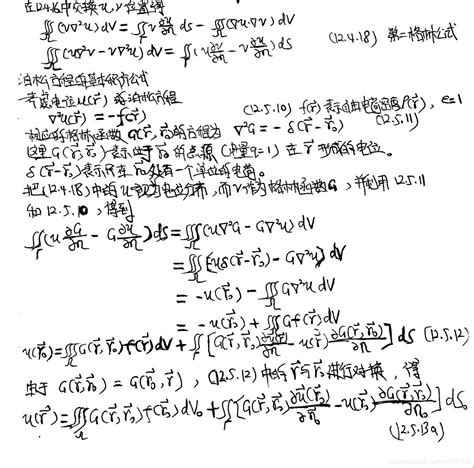 在12.4.16中交换u,v位置得
∭(v∇²u)dV = ∬v ∂u/∂n ds - ∭(∇u·∇v)dV
∭(u∇²v - v∇²u)dV = ∬(u ∂v/∂n - v ∂u/∂n)ds (12.4.18) 第二格林公式
泊松方程的基本积分公式
考虑电位u(r⃗) 满泊松方程
∇²u(r⃗) = -f(r⃗) (12.5.10) f(r⃗)表示自由电荷密度ρ(r⃗), ε=1
相应的格林函数 G(r⃗,r⃗₀)的方程为 ∇²G = -δ(r⃗-r⃗₀) (12.5.11)
这里G(r⃗,r⃗₀)表示位于r⃗₀的点源(电量q=1)在r⃗形成的电位。
δ(r⃗-r⃗₀)表示只在r⃗₀处有一个单位的电荷。
把(12.4.18)中的u视为电位分布,而v作为格林函数G,并利用12.5.11
和12.5.10,得到
∬_Γ(u ∂G/∂n - G ∂u/∂n)ds = ∭(u∇²G - G∇²u)dV
= ∭[-uδ(r⃗-r⃗₀) - G∇²u]dV
= -u(r⃗₀) - ∭G∇²u dV
= -u(r⃗₀) + ∭Gf(r⃗)dV
u(r⃗₀) = ∭G(r⃗,r⃗₀)f(r⃗)dV + ∬_Γ[G(r⃗,r⃗₀) ∂u(r⃗)/∂n - u(r⃗) ∂G(r⃗,r⃗₀)/∂n]ds (12.5.12)
由于 G(r⃗,r⃗₀) = G(r⃗₀,r⃗), (12.5.12)中的r⃗与r⃗₀进行对换,得
u(r⃗) = ∭G(r⃗,r⃗₀)f(r⃗₀)dV₀ + ∬_Γ[G(r⃗,r⃗₀) ∂u(r⃗₀)/∂n₀ - u(r⃗₀) ∂G(r⃗,r⃗₀)/∂n₀]ds₀
(12.5.13a)